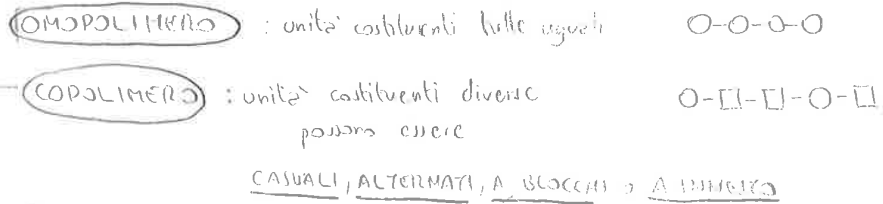 OMOPOLIMERO : unità costituenti tutte uguali
COPOLIMERO : unità costituenti diverse
possono essere
CASUALI, ALTERNATI, A BLOCCHI o A INNESTO